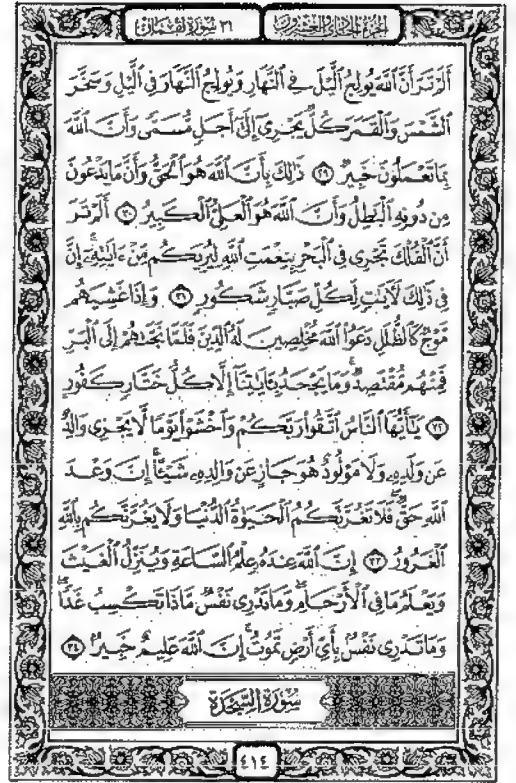 الجزء الحادي والعشرون ٣١ سورة لقمان
أَلَمْ تَرَ أَنَّ ٱللَّهَ يُولِجُ ٱلَّيْلَ فِي ٱلنَّهَارِ وَيُولِجُ ٱلنَّهَارَ فِي ٱلَّيْلِ وَسَخَّرَ
ٱلشَّمْسَ وَٱلْقَمَرَ كُلٌّ يَجْرِيٓ إِلَىٰٓ أَجَلٍ مُّسَمًّى وَأَنَّ ٱللَّهَ
بِمَا تَعْمَلُونَ خَبِيرٌ ٢٩ ذَٰلِكَ بِأَنَّ ٱللَّهَ هُوَ ٱلْحَقُّ وَأَنَّ مَا يَدْعُونَ
مِن دُونِهِ ٱلْبَٰطِلُ وَأَنَّ ٱللَّهَ هُوَ ٱلْعَلِيُّ ٱلْكَبِيرُ ٣٠ أَلَمْ تَرَ
أَنَّ ٱلْفُلْكَ تَجْرِي فِي ٱلْبَحْرِ بِنِعْمَتِ ٱللَّهِ لِيُرِيَكُم مِّنْ ءَايَٰتِهِۦٓ ۚ إِنَّ
فِي ذَٰلِكَ لَأٓيَٰتٍ لِّكُلِّ صَبَّارٍ شَكُورٍ ٣١ وَإِذَا غَشِيَهُم
مَّوْجٌ كَٱلظُّلَلِ دَعَوُا۟ ٱللَّهَ مُخْلِصِينَ لَهُ ٱلدِّينَ فَلَمَّا نَجَّىٰهُمْ إِلَى ٱلْبَرِّ
فَمِنْهُم مُّقْتَصِدٌ ۚ وَمَا يَجْحَدُ بِـَٔايَٰتِنَآ إِلَّا كُلُّ خَتَّارٍ كَفُورٍ
٣٢ يَٰٓأَيُّهَا ٱلنَّاسُ ٱتَّقُوا۟ رَبَّكُمْ وَٱخْشَوْا۟ يَوْمًا لَّا يَجْزِي وَالِدٌ
عَن وَلَدِهِۦ وَلَا مَوْلُودٌ هُوَ جَازٍ عَن وَالِدِهِۦ شَيْـًٔا ۚ إِنَّ وَعْدَ
ٱللَّهِ حَقٌّ ۖ فَلَا تَغُرَّنَّكُمُ ٱلْحَيَوٰةُ ٱلدُّنْيَا وَلَا يَغُرَّنَّكُم بِٱللَّهِ
ٱلْغَرُورُ ٣٣ إِنَّ ٱللَّهَ عِندَهُۥ عِلْمُ ٱلسَّاعَةِ وَيُنَزِّلُ ٱلْغَيْثَ
وَيَعْلَمُ مَا فِي ٱلْأَرْحَامِ ۖ وَمَا تَدْرِي نَفْسٌ مَّاذَا تَكْسِبُ غَدًا ۖ
وَمَا تَدْرِي نَفْسٌۢ بِأَيِّ أَرْضٍ تَمُوتُ ۚ إِنَّ ٱللَّهَ عَلِيمٌ خَبِيرٌۢ ٣٤
سُورَةُ السَّجْدَةِ
٤١٤